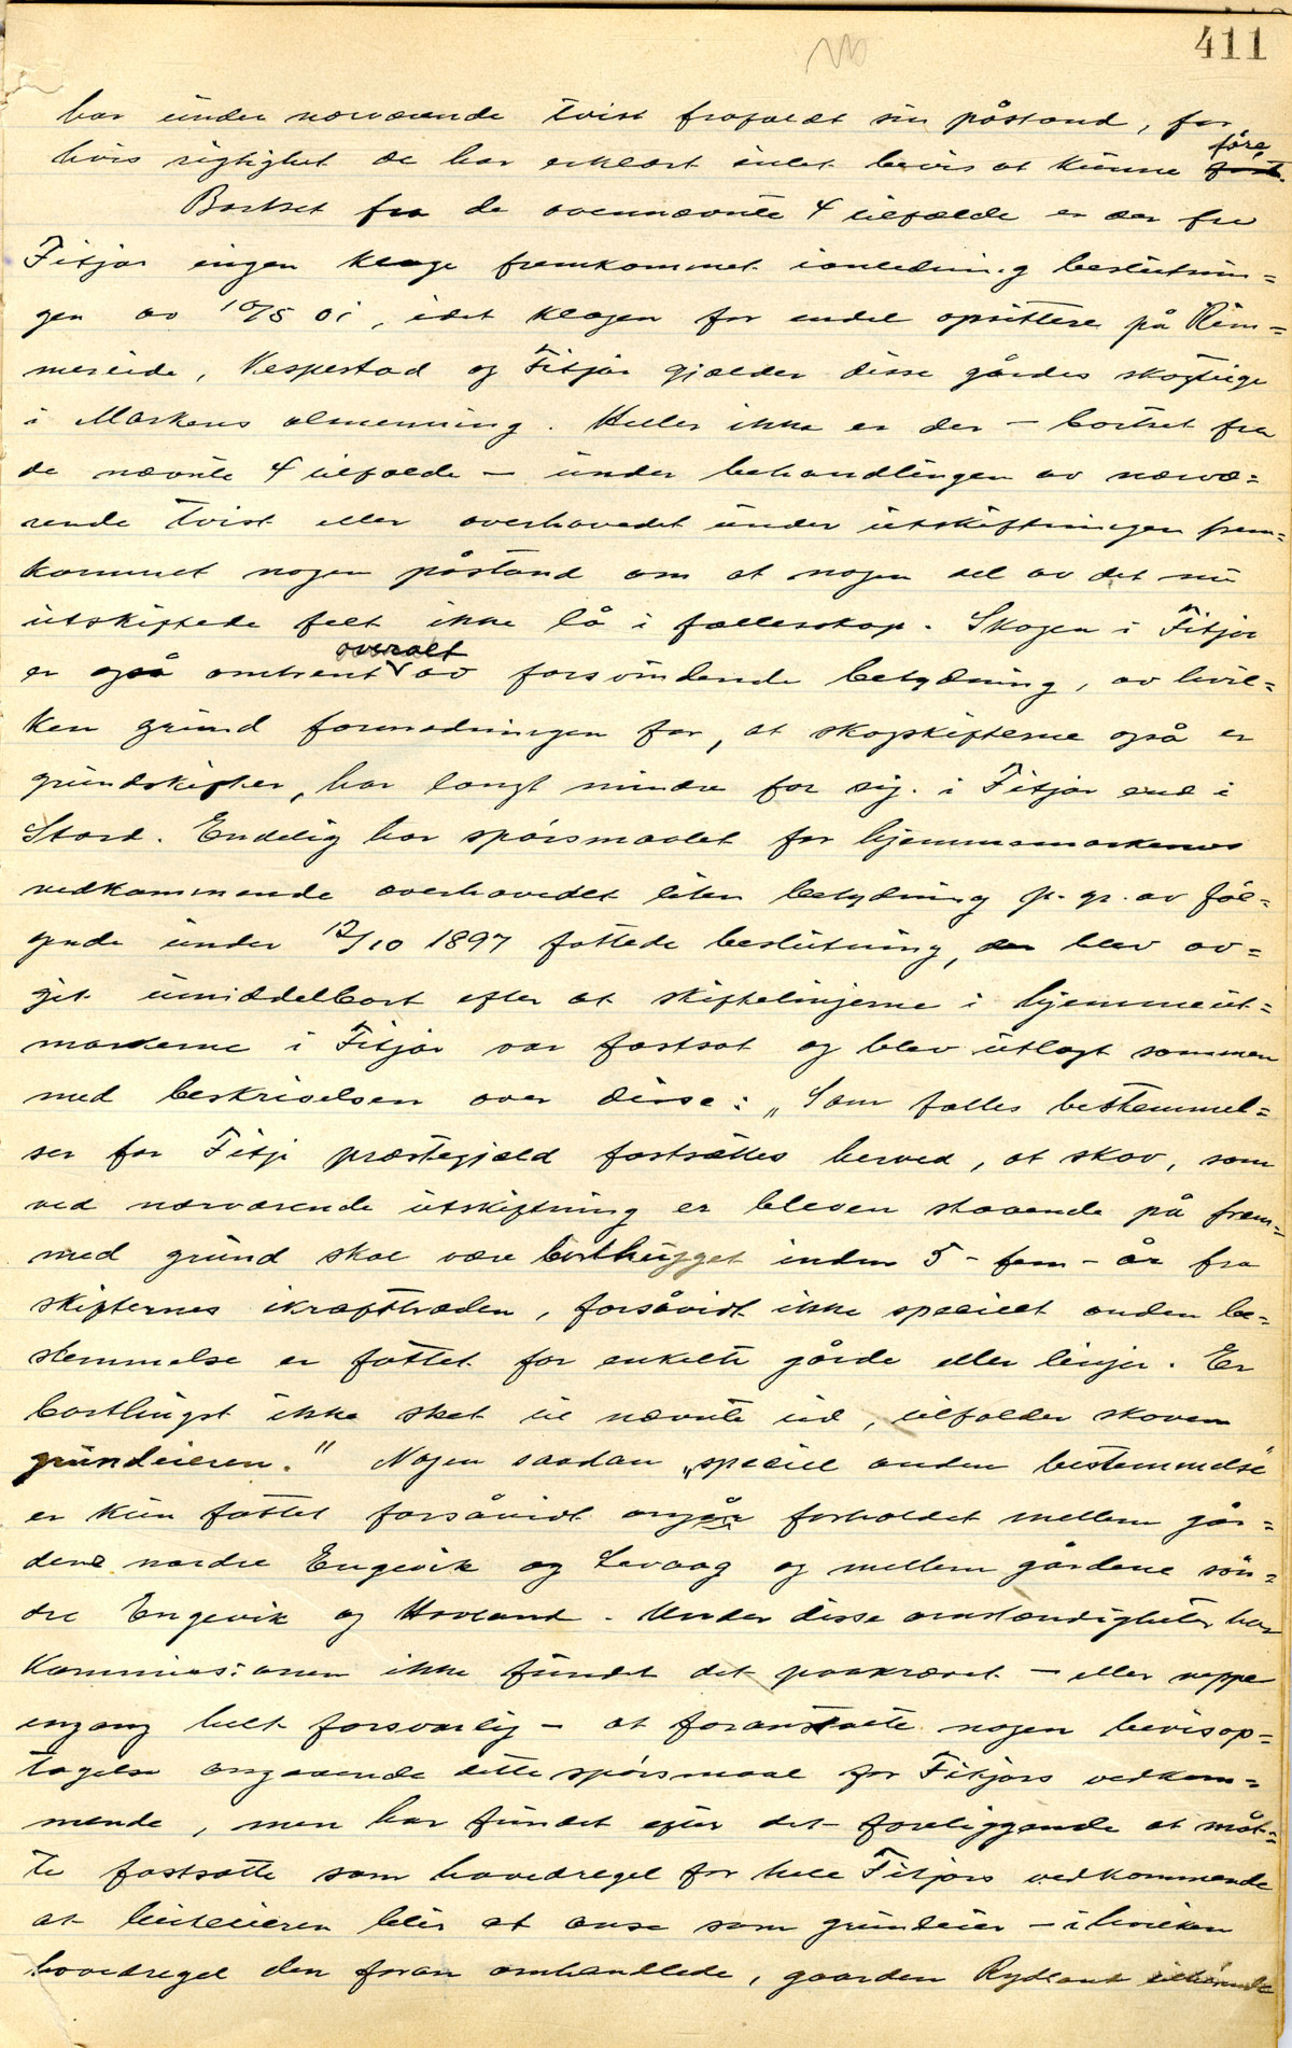 411
har under nærværende tvist frafaldt sin påstand, for
hvis rigtighet de har erklært intet bevis at kunne føre.
Bortset fra de ovennævnte 4 tilfælde er der fra
Fitjar ingen klage fremkommet i anledning beslutnin=
gen av 10/5 01, idet klagen for endel opsittere på Rim=
mereide, Vespestad og Fitjar gjælder disse gårdes skogteige
i Markens almenning. Heller ikke er der – bortset fra
de nævnte 4 tilfælde – under behandlingen av nærvæ=
rende tvist eller overhovedet under utskiftningen frem=
kommet nogen påstand om at nogen del av det nu
utskiftede felt ikke lå i fællesskap. Skogen i Fitjar
er også omtrent overalt av forsvindende betydning, av hvil=
ken grund formodningen for, at skogskifterne også er
grundskifter, har langt mindre for sig i Fitjar end i
Stord. Endelig har spørsmaalet for hjemmemarkenes
vedkommende overhovedet liten betydning p. gr. av føl=
gende under 12/10 1897 fattede beslutning, der blev av=
git umiddelbart efter at skiftelinjerne i hjemmeut=
markerne i Fitjar var fastsat og blev utlagt sammen
med beskrivelsen over disse: „Som fælles bestemmel=
ser for Fitje præstegjæld fastsættes herved, at skov, som
ved nærværende utskiftning er bleven staaende på frem=
med grund skal være borthugget inden 5 – fem – år fra
skifternes ikrafttræden, forsåvidt ikke specielt anden be=
stemmelse er fattet for enkelte gårde eller linjer. Er
borthugst ikke sket til nævnte tid, tilfalder skoven
grundeieren." Nogen saadan „speciel anden bestemmelse"
er kun fattet forsåvidt angår forholdet mellem går=
dene nordre Engevik og Levaag og mellem gårdene søn=
dre Engevik og Hovland. Under disse omstændigheter har
Kommissionen ikke fundet det paakrævet – eller neppe
engang helt forsvarlig – at foranstalte nogen bevisop=
tagelse angaaende dette spørsmaal for Fitjars vedkom=
mende, men har fundet efter det foreliggende at måt=
te fastsætte som hovedregel for hele Fitjars vedkommende
at luteieren blir at anse som grundeier – i hvilken
hovedregel den foran omhandlede, gaarden Rydland tilhørende